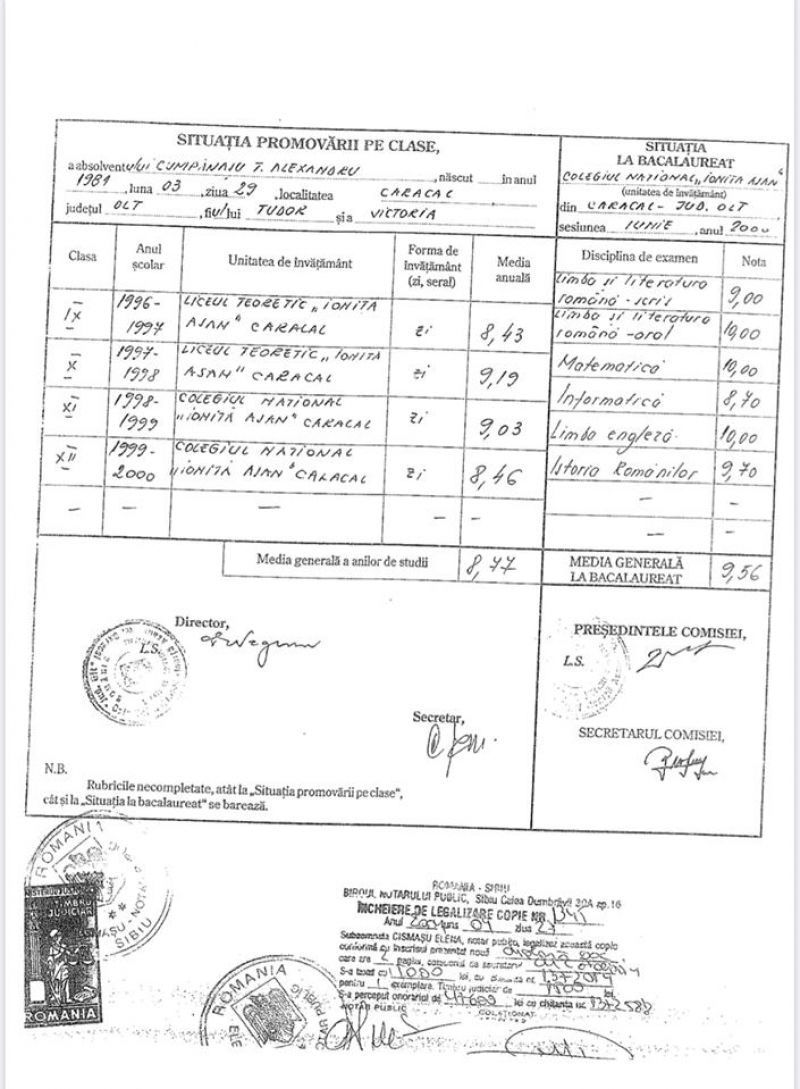 SITUAȚIA PROMOVĂRII PE CLASE,
a absolventului CUMPĂNAȘU T. ALEXANDRU, născut în anul
1981, luna 03, ziua 29, localitatea CARACAL
județul OLT, fiu/lui TUDOR și a VICTORIA
Clasa
Anul școlar
Unitatea de învățământ
Forma de învățământ (zi, seral)
Media anuală
IX
1996-1997
LICEUL TEORETIC „IONIȚĂ ASAN" CARACAL
zi
8,43
X
1997-1998
LICEUL TEORETIC „IONIȚĂ ASAN" CARACAL
zi
9,19
XI
1998-1999
COLEGIUL NAȚIONAL „IONIȚĂ ASAN" CARACAL
zi
9,03
XII
1999-2000
COLEGIUL NAȚIONAL „IONIȚĂ ASAN" CARACAL
zi
8,46
Media generală a anilor de studii
8,77
SITUAȚIA
LA BACALAUREAT
COLEGIUL NAȚIONAL „IONIȚĂ ASAN"
(unitatea de învățământ)
din CARACAL - JUD. OLT
sesiunea IUNIE, anul 2000
Disciplina de examen
Nota
Limba și literatura română - scris
9,00
Limba și literatura română - oral
10,00
Matematică
10,00
Informatică
8,70
Limba engleză
10,00
Istoria Românilor
9,70
MEDIA GENERALĂ
LA BACALAUREAT
9,56
Director,
L.S.
Secretar,
PREȘEDINTELE COMISIEI,
L.S.
SECRETARUL COMISIEI,
N.B.
Rubricile necompletate, atât la „Situația promovării pe clase",
cât și la „Situația la bacalaureat" se barează.
ROMANIA
SIBIU
TIMBRU
JUDICIAR
ROMANIA
ROMANIA
ROMANIA - SIBIU
BIROUL NOTARULUI PUBLIC, Sibiu Calea Dumbrăvii
ÎNCHEIERE DE LEGALIZARE COPIE NR. 1341
Anul luna ziua
Subsemnata CISMAȘU ELENA, notar public, legalizez această copie
conformă cu înscrisul prezentat nouă
care are 2 pagini,
S-a taxat cu 1000 lei, cu chitanța nr.
pentru 1 exemplare. Timbru judiciar de
S-a perceput onorariul de lei cu chitanța nr.
NOTAR PUBLIC
COLAȚIONAT